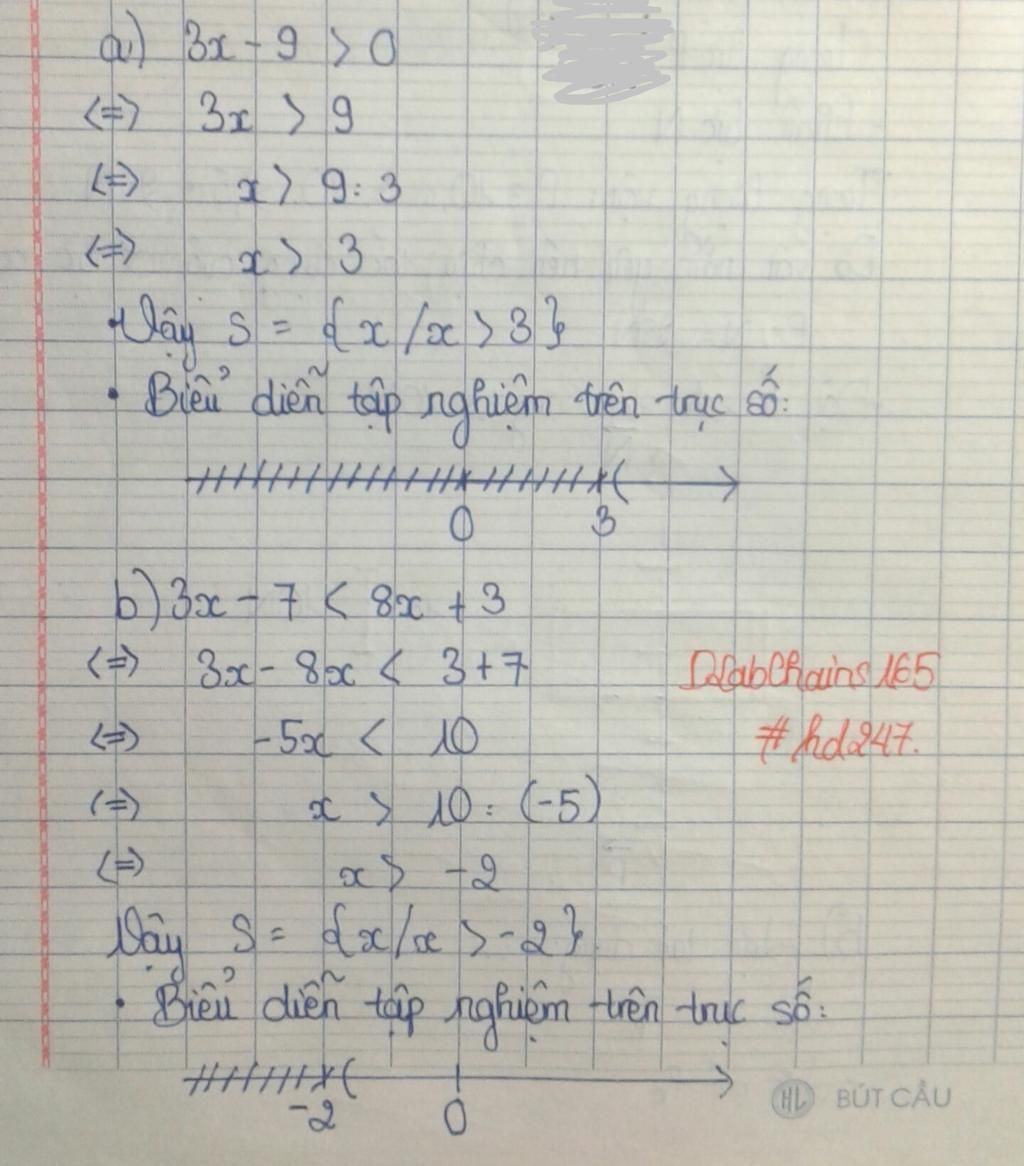 a) 3x - 9 > 0
<=> 3x > 9
<=> x > 9 : 3
<=> x > 3
• Vậy S = {x/x > 3}
• Biểu diễn tập nghiệm trên trục số:
0 3
b) 3x - 7 < 8x + 3
<=> 3x - 8x < 3 + 7
<=> -5x < 10
#hd247.
<=> x > 10 : (-5)
<=> x > -2
Vậy S = {x/x > -2}
• Biểu diễn tập nghiệm trên trục số:
-2 0
HL BÚT CẦU